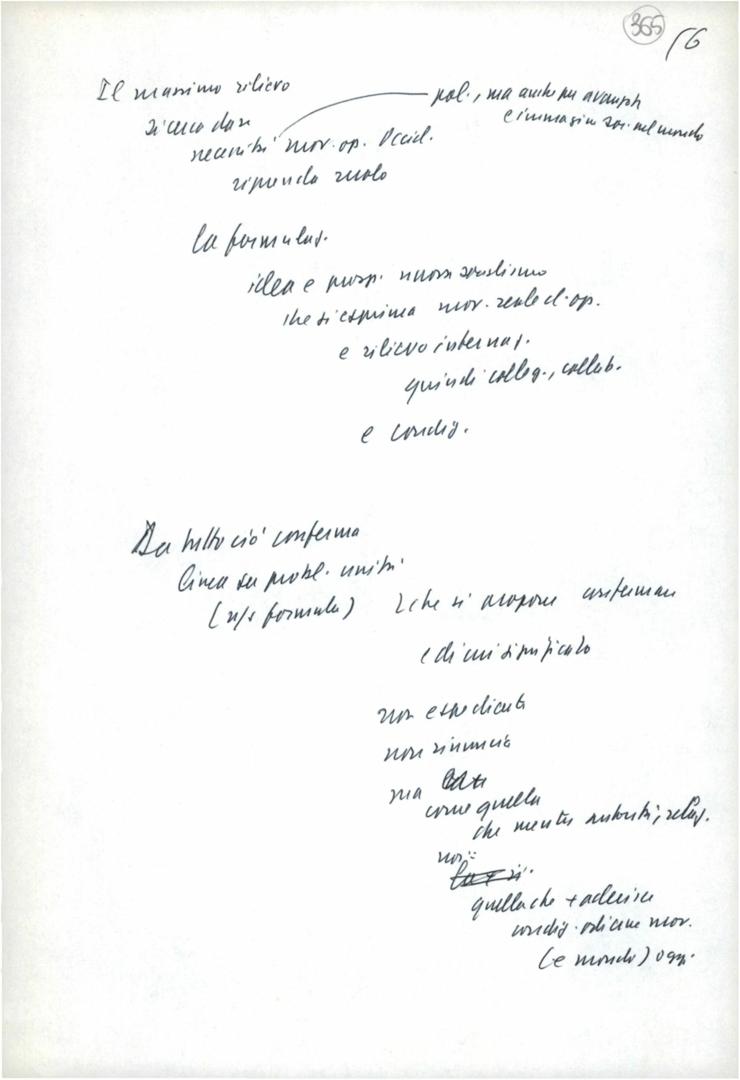 365
16
Il massimo rilievo
pol., ma anche per avanzata
si cerca dare
e immagine soc. nel mondo
necessità mov. op. Occid.
riprenda ruolo
la formulaz.
idea e prosp. nuovo socialismo
che si esprima mov. reale cl. op.
e rilievo internaz.
quindi colleg., collab.
e condiz.
Da tutto ciò conferma
linea su probl. unità
(n/s formula) che si propone confermare
e di cui significato
non espediente
non rinuncia
ma
come quella
che mentre autorità, relaz.
noi:
quella che + aderisce
condiz. odierne mov.
(e mondo) oggi.